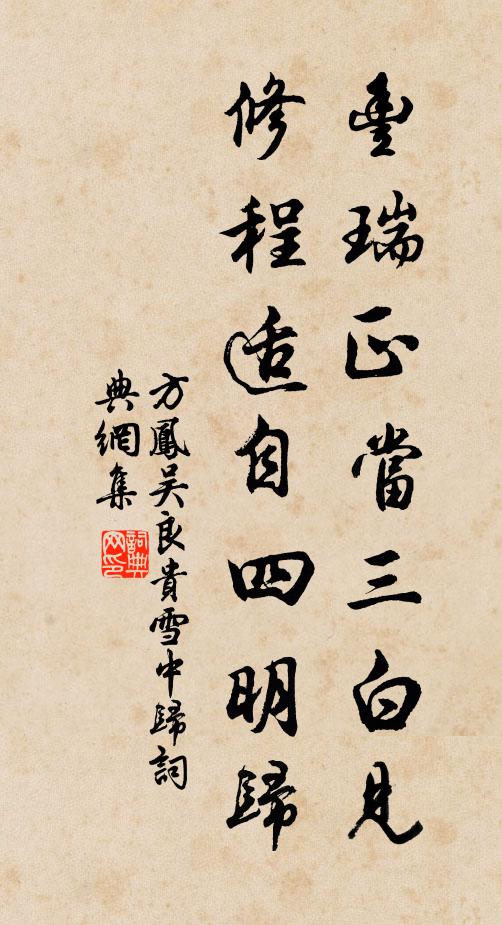 豐瑞正當三白見
修程适自四明歸
方鳳吳良貴雪中歸詞
典網集
詞典
网印